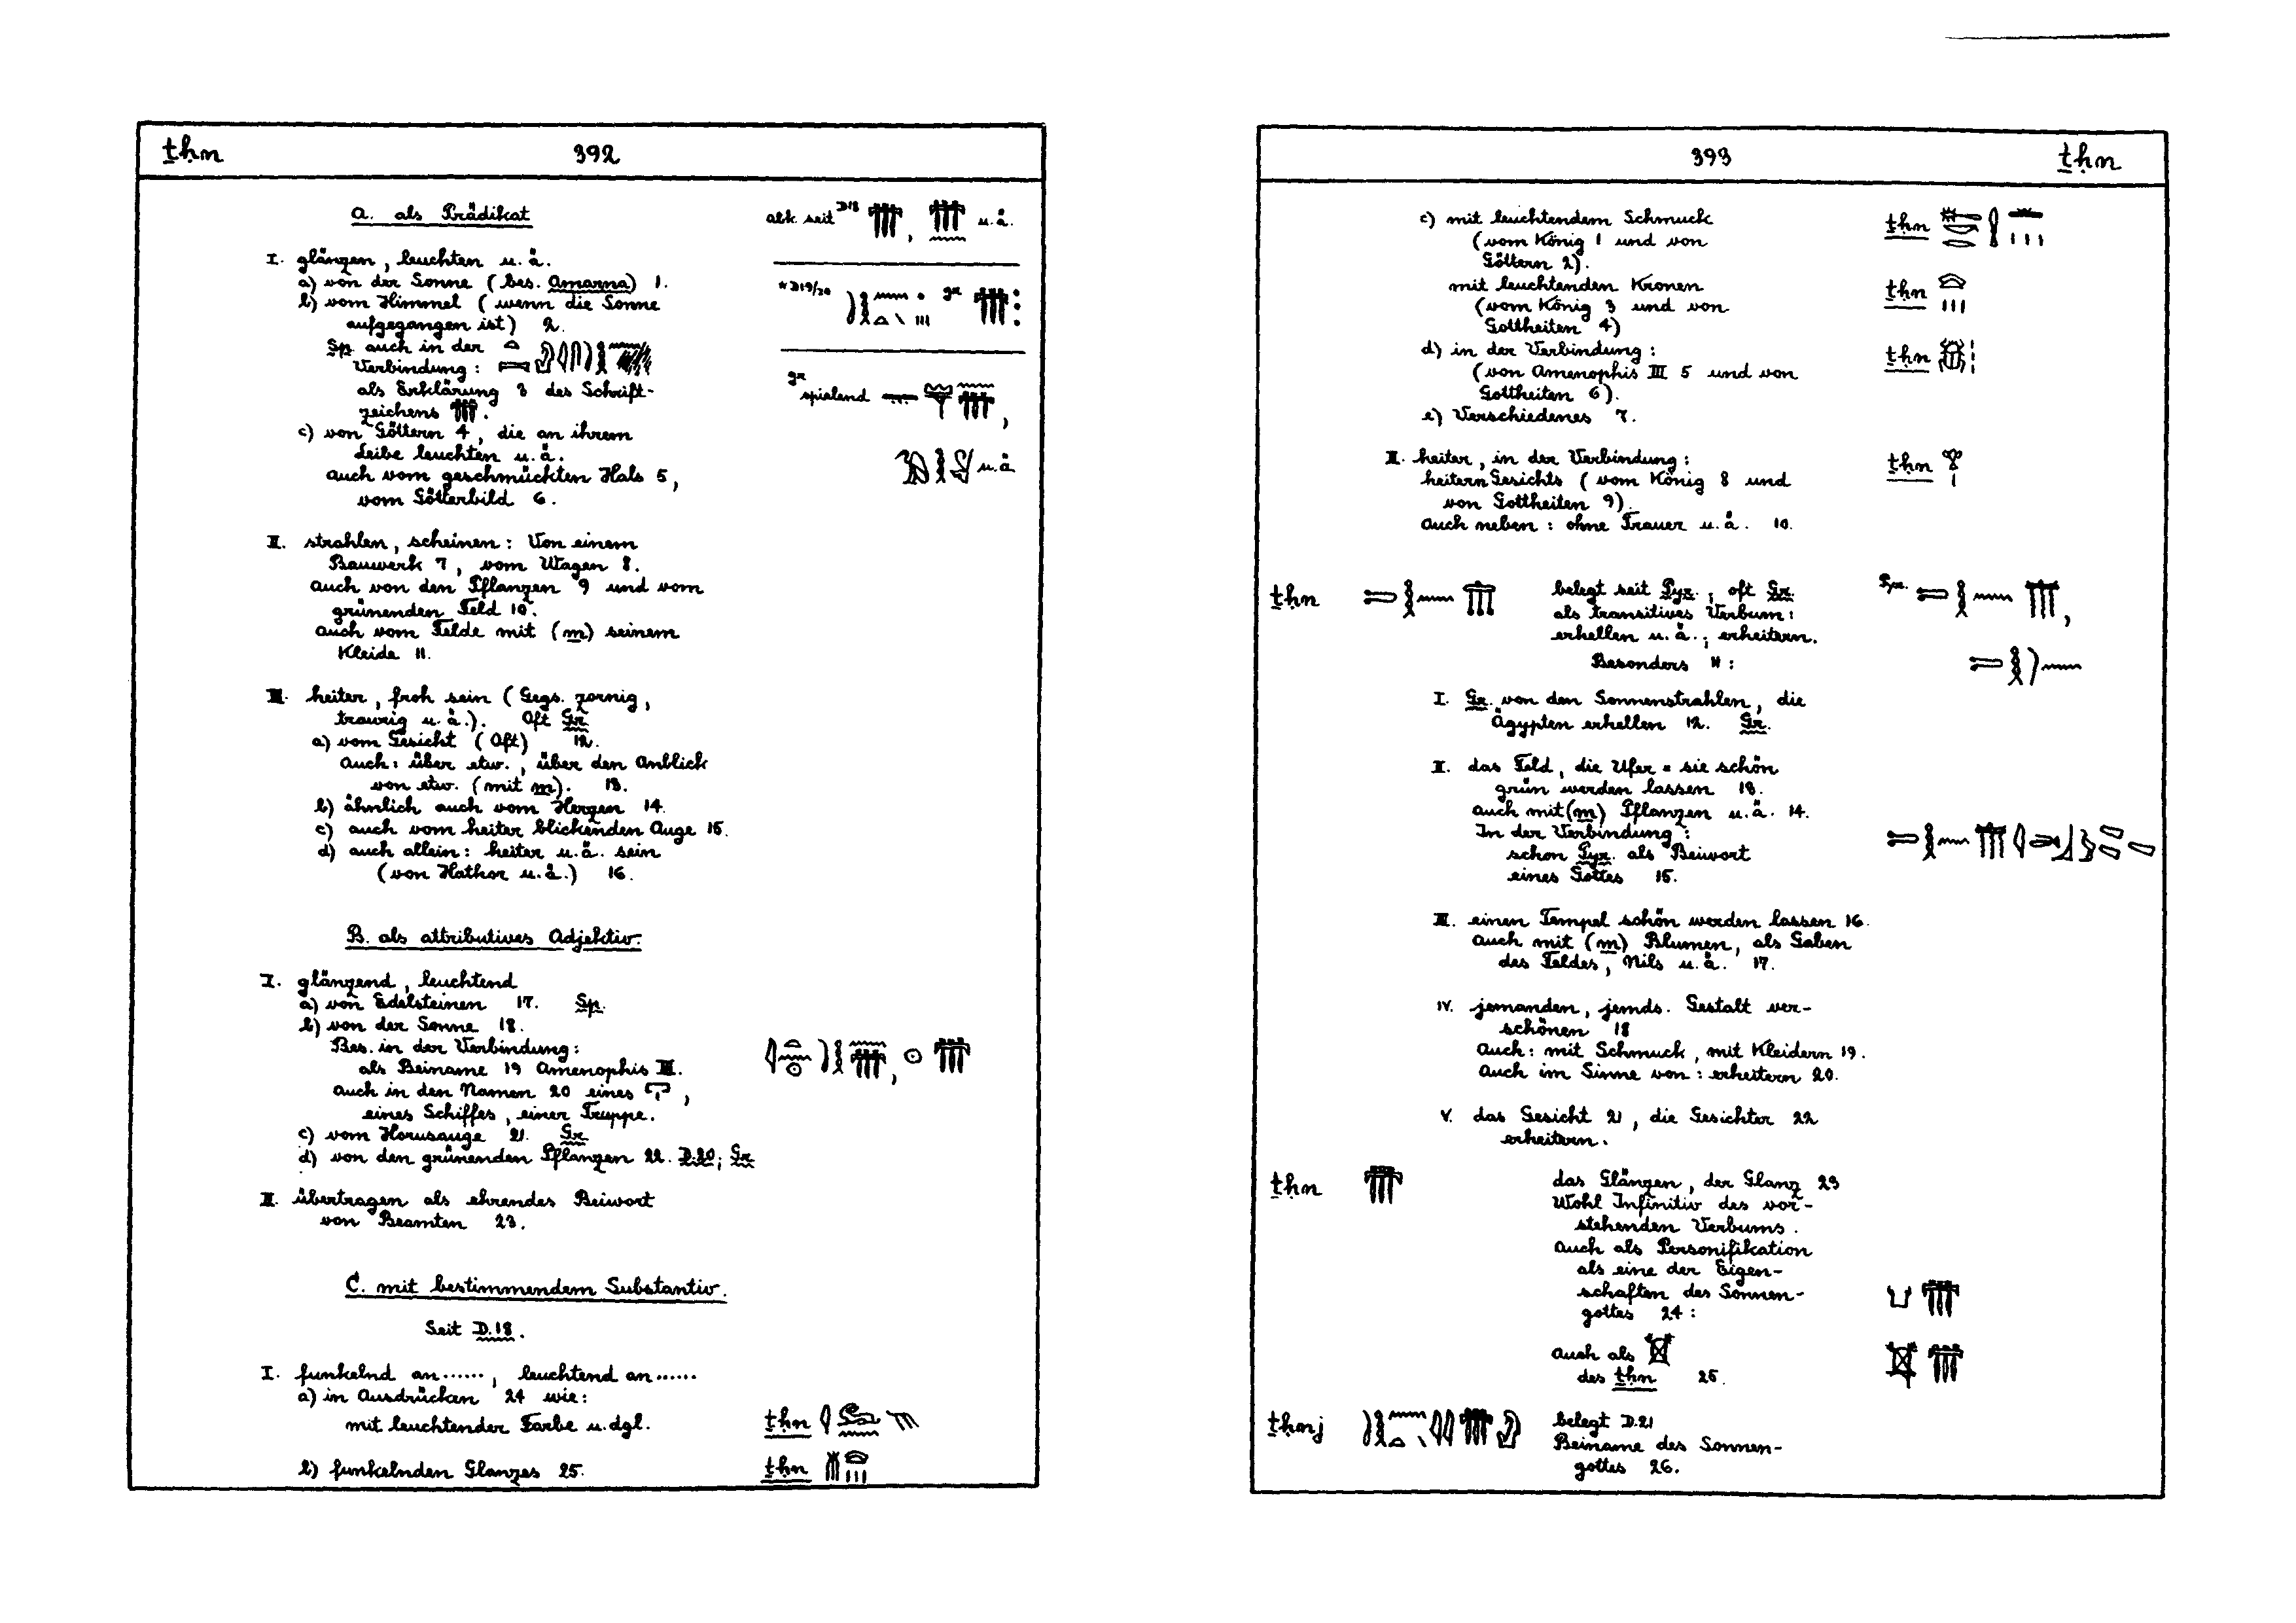 ṯḥn 392
A. als Prädikat
I. glänzen, leuchten u.ä.
a) von der Sonne (bes. Amarna) 1.
b) vom Himmel (wenn die Sonne
aufgegangen ist) 2.
Sp auch in der
Verbindung:
als Erklärung 3 des Schrift-
zeichens
c) von Göttern 4, die an ihrem
Leibe leuchten u.ä.
auch vom geschmückten Hals 5,
vom Götterbild 6.
II. strahlen, scheinen: Von einem
Bauwerk 7, vom Wagen 8.
auch von den Pflanzen 9 und vom
grünenden Feld 10.
auch vom Felde mit (m) seinem
Kleide 11.
III. heiter, froh sein (Gegs. zornig,
traurig u.ä.). Oft Gr.
a) vom Gesicht (Oft) 12.
Auch: über etw., über den Anblick
von etw. (mit m). 13.
b) ähnlich auch vom Herzen 14.
c) auch vom heiter blickenden Auge 15.
d) auch allein: heiter u.ä. sein
(von Hathor u.ä.) 16.
B. als attributives Adjektiv.
I. glänzend, leuchtend
a) von Edelsteinen 17. Sp.
b) von der Sonne 18.
Bes. in der Verbindung:
als Beiname 19 Amenophis III.
auch in den Namen 20 eines ,
eines Schiffes, einer Truppe.
c) vom Horusauge 21. Gr.
d) von den grünenden Pflanzen 22. D.20; Gr.
II. übertragen als ehrendes Beiwort
von Beamten 23.
C. mit bestimmendem Substantiv.
Seit D.18.
I. funkelnd an ......, leuchtend an ......
a) in Ausdrücken 24 wie:
mit leuchtender Farbe u.dgl.
b) funkelnden Glanzes 25.
abk. seit D18 , u.ä.
*D19/20 gr
gr
spielend ,
u.ä
ṯḥn
ṯḥn
393 ṯḥn
c) mit leuchtendem Schmuck ṯḥn
(vom König 1 und von
Göttern 2).
mit leuchtenden Kronen ṯḥn
(vom König 3 und von
Gottheiten 4)
d) in der Verbindung: ṯḥn
(von Amenophis III 5 und von
Gottheiten 6).
e) Verschiedenes 7.
II. heiter, in der Verbindung: ṯḥn
heitern Gesichts (vom König 8 und
von Gottheiten 9).
Auch neben: ohne Trauer u.ä. 10.
ṯḥn belegt seit Pyr., oft Gr. Pyr. ,
als transitives Verbum:
erhellen u.ä.; erheitern.
Besonders 11:
I. Gr. von den Sonnenstrahlen, die
Ägypten erhellen 12. Gr.
II. das Feld, die Ufer = sie schön
grün werden lassen 13.
auch mit (m) Pflanzen u.ä. 14.
In der Verbindung:
schon Pyr. als Beiwort
eines Gottes 15.
III. einen Tempel schön werden lassen 16.
auch mit (m) Blumen, als Gaben
des Feldes, Nils u.ä. 17.
IV. jemanden, jemds. Gestalt ver-
schönen 18
Auch: mit Schmuck, mit Kleidern 19.
Auch im Sinne von: erheitern 20.
V. das Gesicht 21, die Gesichter 22
erheitern.
ṯḥn das Glänzen, der Glanz 23
Wohl Infinitiv des vor-
stehenden Verbums.
Auch als Personifikation
als eine der Eigen-
schaften des Sonnen-
gottes 24:
Auch als
des ṯḥn 25.
ṯḥnj belegt D.21
Beiname des Sonnen-
gottes 26.